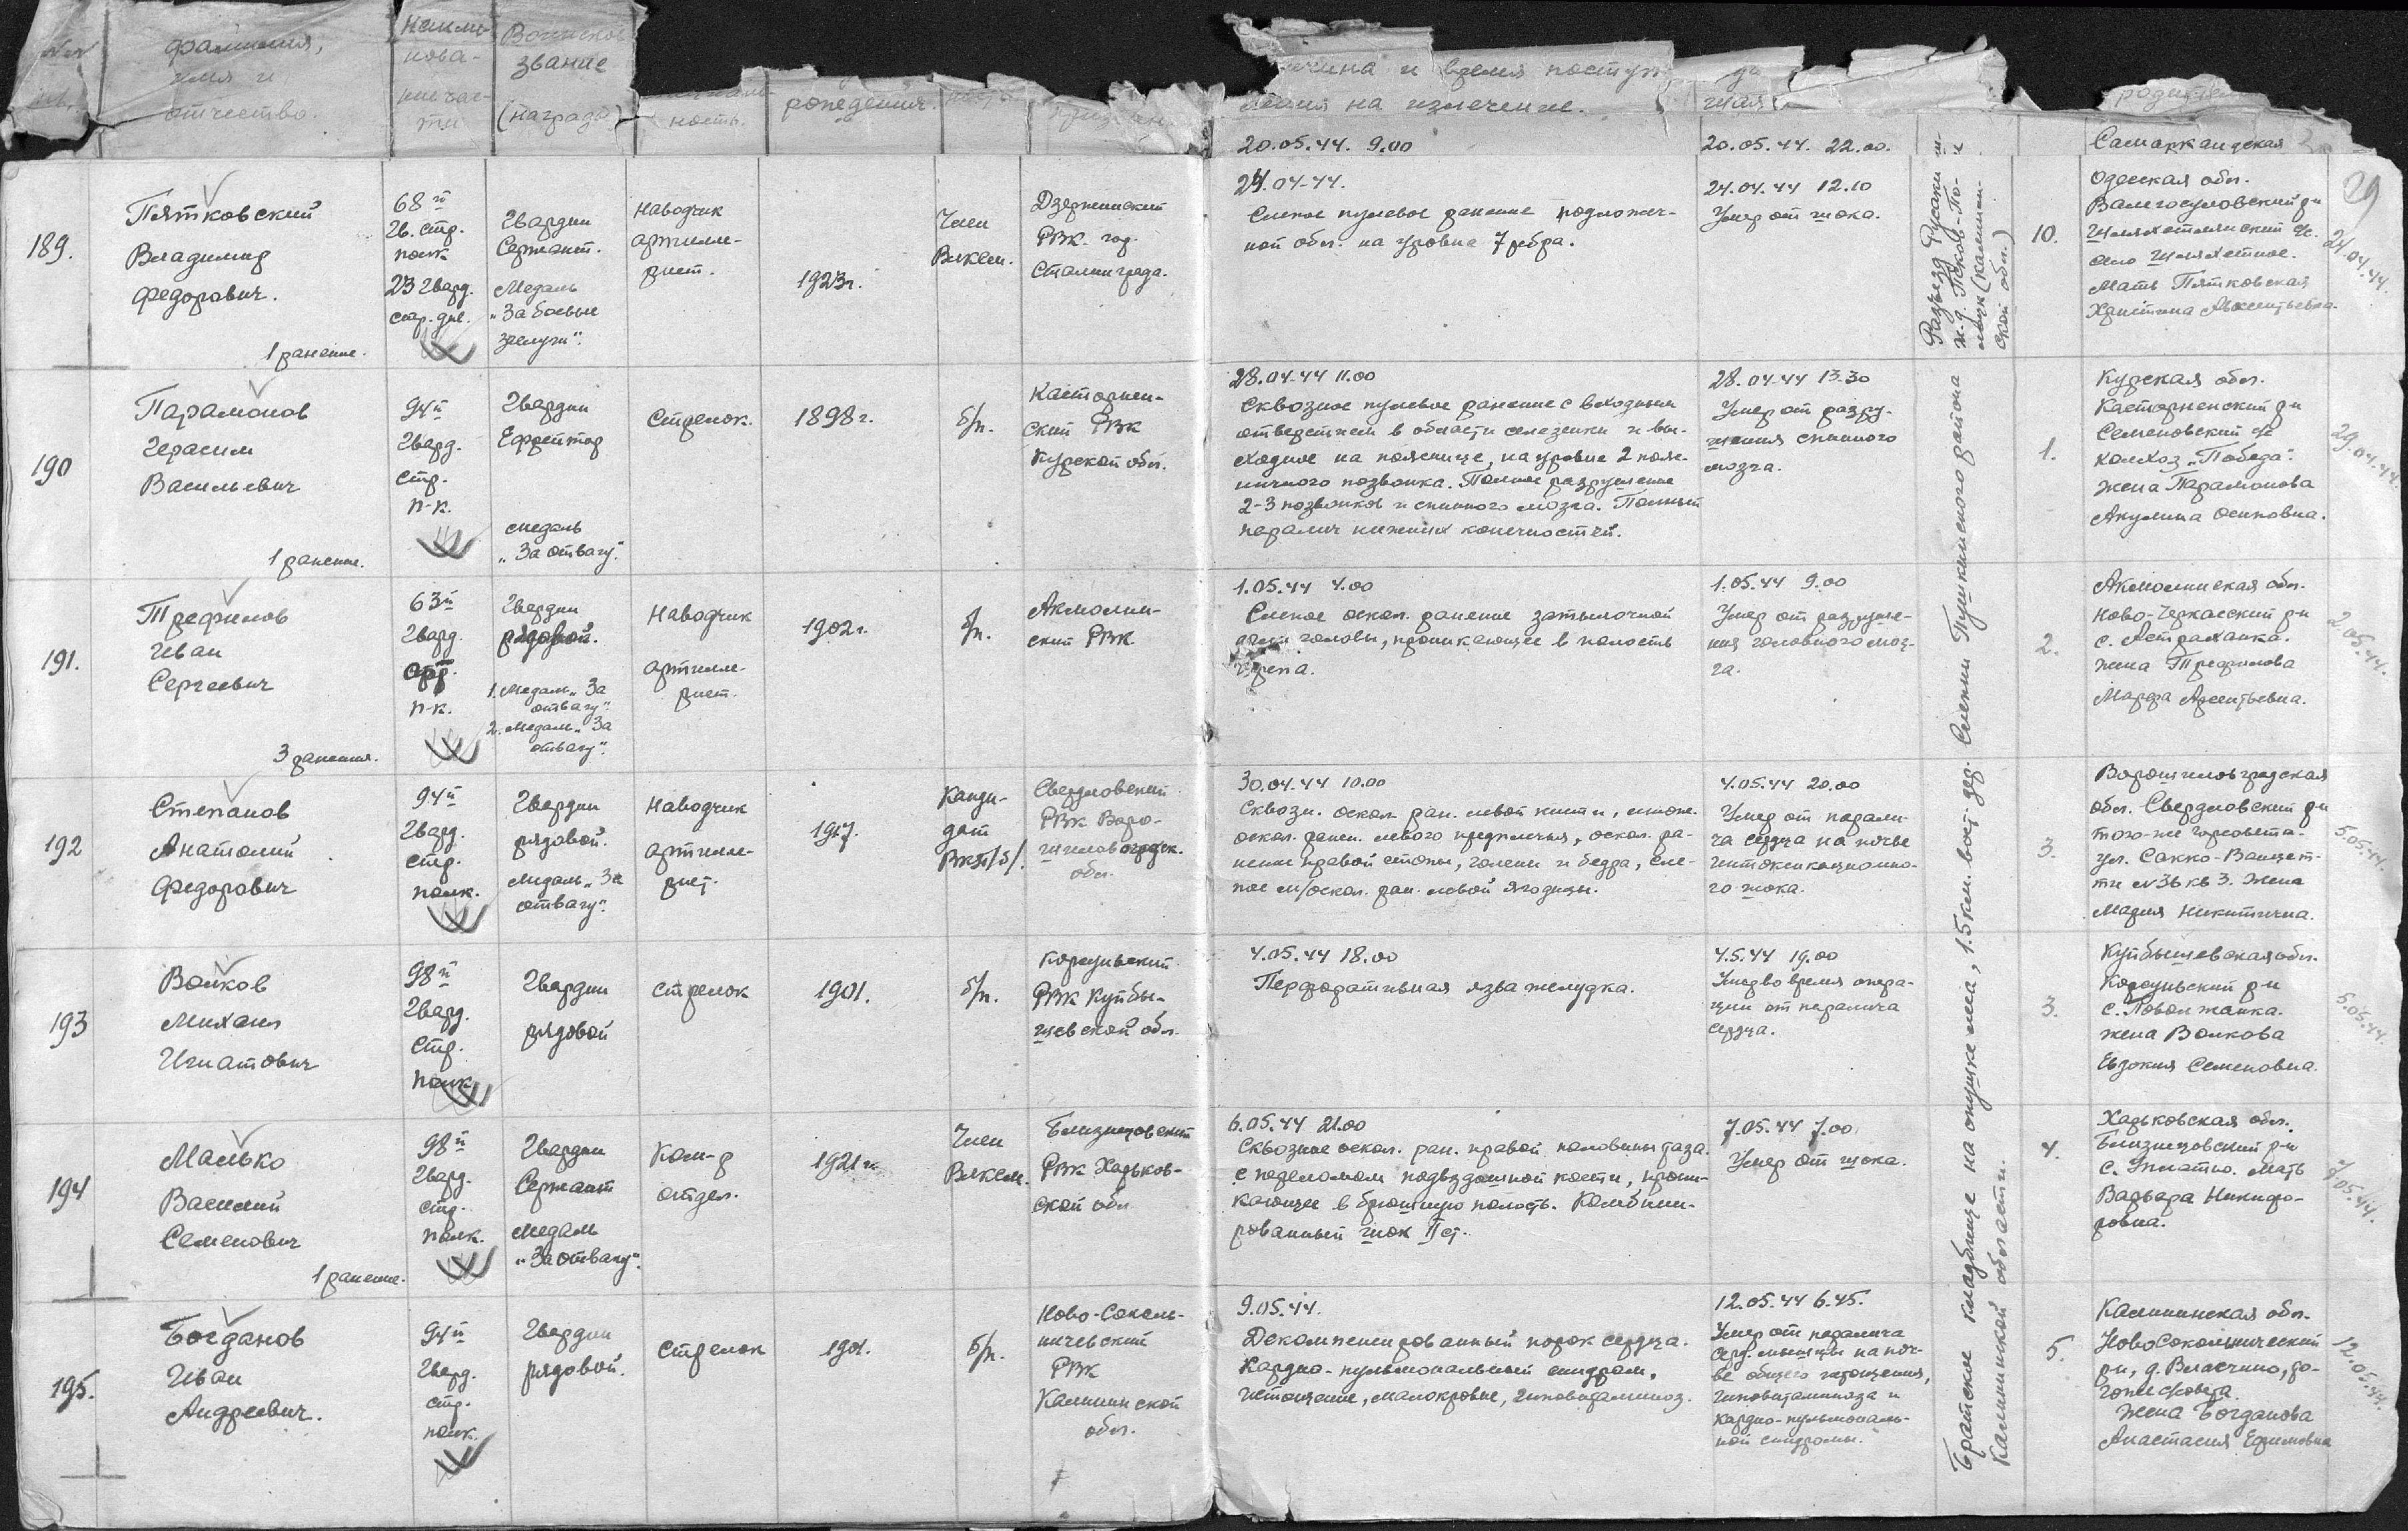 фамилия,
имя и
отчество.
Наиме-
нова-
ние час-
ти
звание
(награда)
ность.
рождения.
и время поступ
на излечение.
20.05.44. 9.00
20.05.44. 22.00.
Самаркандская
29
189.
Пятковский
Владимир
Федорович.
1 ранение.
68й
Гв. стр.
полк
23 Гвард.
стр. див.
Гвардии
Сержант.
Медаль
„За боевые
заслуги".
Наводчик
артилле-
рист.
1923г.
Член
Влксм.
Дзержинский
РВК. гор.
Сталинграда.
24.04-44.
Слепое пулевое ранение подложеч-
ной обл. на уровне 7 ребра.
24.04.44 12.10
Умер от шока.
Разъезд Русаки
ж.д. Псков-По-
лоцк (Калинин-
ской обл.)
10.
Одесская обл.
Валегоцуловский рн
Шляхетлянский с/с.
село Шляхетное.
Мать Пятковская
Христина Авксентьевна.
24.04.44.
190
Парамонов
Герасим
Васильевич
1 ранение.
94й
Гвард.
стр.
п-к.
Гвардии
Ефрейтор
медаль
„За отвагу".
Стрелок.
1898г.
б/п.
Касторнен-
ский РВК
Курской обл.
28.04-44 11.00
Сквозное пулевое ранение с входным
отверстием в области селезенки и вы-
ходное на пояснице, на уровне 2 пояс-
ничного позвонка. Полное разрушение
2-3 позвонков и спинного мозга. Полный
паралич нижних конечностей.
28.04-44 13.30
Умер от разру-
шения спинного
мозга.
1.
Курская обл.
Касторненский рн
Семеновский с/с
колхоз „Победа".
жена Парамонова
Акулина Осиповна.
29.04.44.
191.
Трефилов
Иван
Сергеевич
3 ранения.
63й
Гвард.
арт.
п-к.
Гвардии
рядовой.
1. Медаль „За
отвагу".
2. Медаль „За
отвагу".
Наводчик
артилле-
рист.
1902г.
б/п.
Акмолин-
ский РВК
1.05.44 4.00
Слепое оскол. ранение затылочной
части головы, проникающее в полость
черепа.
1.05.44 9.00
Умер от разруше-
ния головного моз-
га.
2.
Акмолинская обл.
Ново-Черкасский рн
с. Астраханка.
жена Трефилова
Марфа Арсентьевна.
2.05.44.
192
Степанов
Анатолий
Федорович
94й
Гвард.
стр.
полк.
Гвардии
рядовой.
Медаль „За
отвагу".
Наводчик
артилле-
рист.
1917.
Канди-
дат
Вкп/б/.
Свердловский
РВК Воро-
шиловоградск.
обл.
30.04.44 10.00
Сквозн. оскол. ран. левой кисти, множ.
оскол. ранен. левого предплечья, оскол. ра-
нение правой стопы, голени и бедра, сле-
пое м/оскол. ран. левой ягодицы.
4.05.44 20.00
Умер от парали-
ча сердца на почве
интоксикационно-
го шока.
3.
Ворошиловградская
обл. Свердловский рн
того-же горсовета.
ул. Сакко-Ванцет-
ти №36 кв 3. Жена
Мария Никитична.
5.05.44.
193
Волков
Михаил
Игнатович
98й
Гвард.
стр.
полк
Гвардии
рядовой
стрелок
1901.
б/п.
РВК Куйбы-
шевской обл.
4.05.44 18.00
Перфоративная язва желудка.
4.5.44 19.00
Умер во время опера-
ции от паралича
сердца.
3.
Куйбышевская обл.
с. Поволжанка.
жена Волкова
Евдокия Семеновна.
5.05.44.
194
Малько
Василий
Семенович
1 ранение.
98й
Гвард.
стр.
полк.
Гвардии
Сержант
медаль
„За отвагу".
Ком-р
отдел.
1921г.
Член
Влксм.
Близнецовский
РВК Харьков-
ской обл
6.05.44 21.00
Сквозное оскол. ран. правой половины таза.
с переломом подвздошной кости, прони-
кающее в брюшную полость. Комбини-
рованный шок II ст.
7.05.44 7.00.
Умер от шока.
4.
Харьковская обл.
Близнецовский р-н
Мать
Варвара Никифо-
ровна.
7.05.44.
195.
Богданов
Иван
Андреевич.
94й
Гвард.
стр.
полк.
Гвардии
рядовой.
Стрелок
1901.
б/п.
Ново-Соколь-
нический
РВК
Калининской
обл.
9.05.44.
Декомпенсированный порок сердца.
Кардио-пульмональный синдром,
истощение, малокровие, гиповитаминоз.
12.05.44 6.45.
Умер от паралича
серд. мышцы на поч-
ве общего истощения,
гиповитаминоза и
кардио-пульмональ-
ной синдромы.
5.
Калининская обл.
НовоСокольнический
рн, д. Власчино,
жена Богданова
Анастасия Ефимовна
12.05.44.
Братское кладбище на опушке леса, 1.5 км. вост. дер. Слепни Пушкинского района
Калининской области.